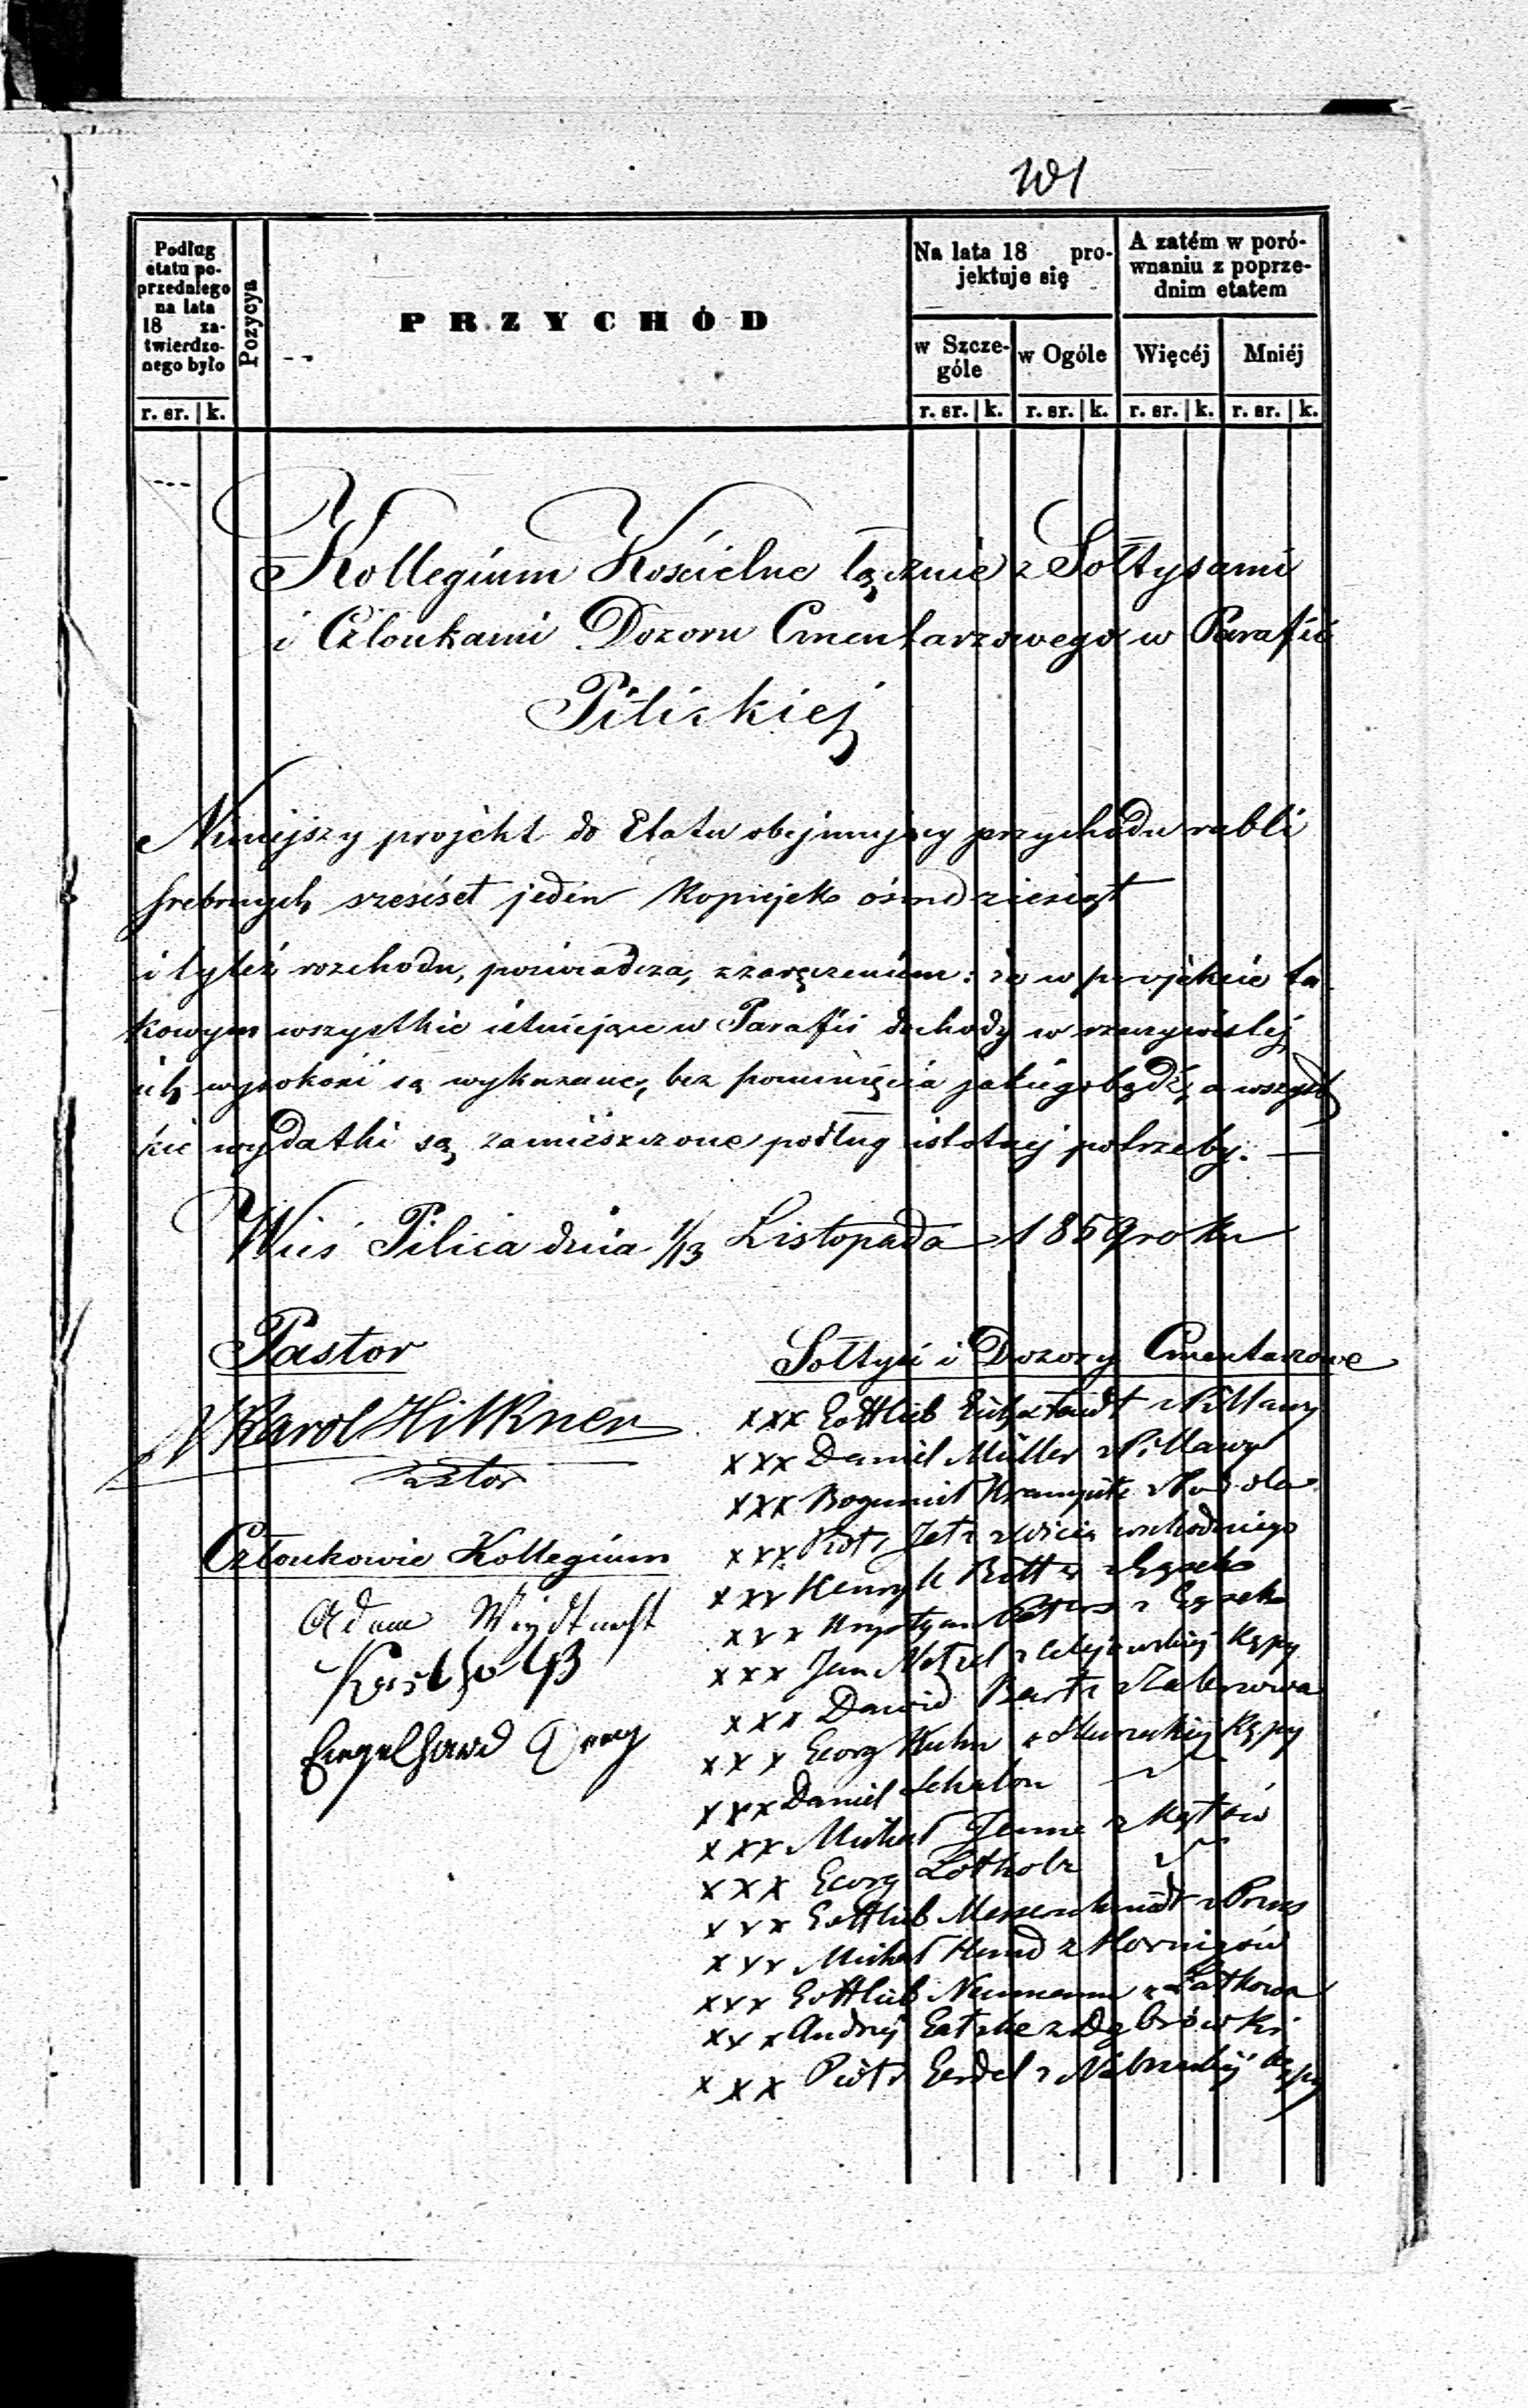 201
Podług etatu poprzedniego na lata 18 zatwierdzonego było
Pozycya
PRZYCHÓD
Na lata 18 projektuje się
A zatém w porównaniu z poprzednim etatem
w Szczególe
w Ogóle
Więcéj
Mniéj
r. sr. | k.
r. sr. | k.
r. sr. | k.
r. sr. | k.
r. sr. | k.
Kollegium Kościelne łącznie z Sołtysami
i Członkami Dozoru Cmentarzowego w Parafii
Piliskiej
Niniejszy projekt do Etatu obejmujący przychodu rubli
srebrnych sześćset jeden Kopiejek ośmdziesiąt
i tyleż rozchodu, poświadcza, z zaręczeniem: że w projekcie ta
kowym wszystkie istniejące w Parafii dochody w rzeczywistej
ich wysokości są wykazane, bez pominięcia jakiegobądź, a wszyst
kie wydatki są zamieszczone podług istotnej potrzeby. —
Wieś Pilica dnia 1/13 Listopada 1859 roku
Pastor
Karol Hilkner
Pastor
Członkowie Kollegium
Adam
Engelhard
Sołtysi i Dozory Cmentarzowe
xxx Gottlieb
xxx Daniel Müller
xxx Bogumił
xxx Piotr wschodniego
xxx Henryk
xxx Krystyan
xxx Jan Kępy
xxx Dawid
xxx Georg Kuhn Kępy
xxx Daniel
xxx Michał
xxx Georg Lotholz
xxx Gottlieb
xxx Michał Hund z Hornigów
xxx Gottlieb Neumann z Latkowa
xxx Andrzej z Dąbrówki
xxx Piotr Kępy